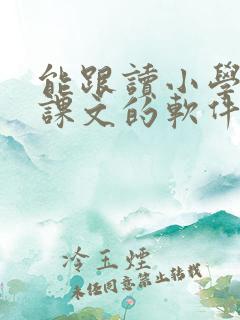 能跟讀小學
課文的軟件
冷玉煙
未經同意禁止轉載